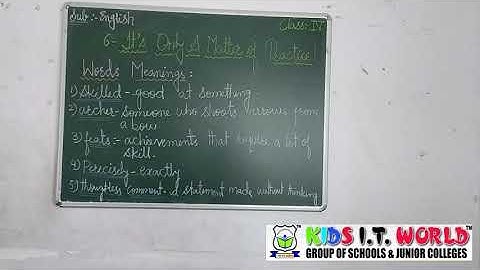 Sub:- English
Class: IV
6- It's Only A Matter of Practice!
Words Meanings:
1) Skilled - good at something.
2) archer - someone who shoots arrows from
a bow.
3) feats:- achievements that require a lot of
skill.
4) Percisely - exactly
5) Thoughtless comment - A statement made without thinking
KIDS I.T. WORLD
TM
GROUP OF SCHOOLS & JUNIOR COLLEGES